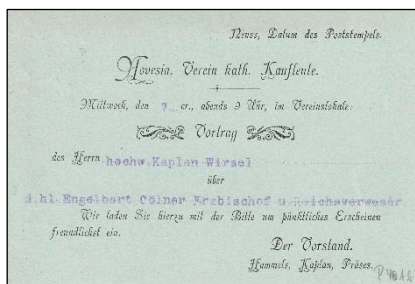 Neuss, Datum des Poststempels.
Novesia, Verein kath. Kaufleute.
Mittwoch, den 7. cr., abends 9 Uhr, im Vereinslokale:
Vortrag
des Herrn hochw. Kaplan Wirsel
über
d. hl. Engelbert Cölner Erzbischof u Reichsverweser
Wir laden Sie hierzu mit der Bitte um pünktliches Erscheinen
freundlichst ein.
Der Vorstand.
Hammels, Kaplan, Präses.